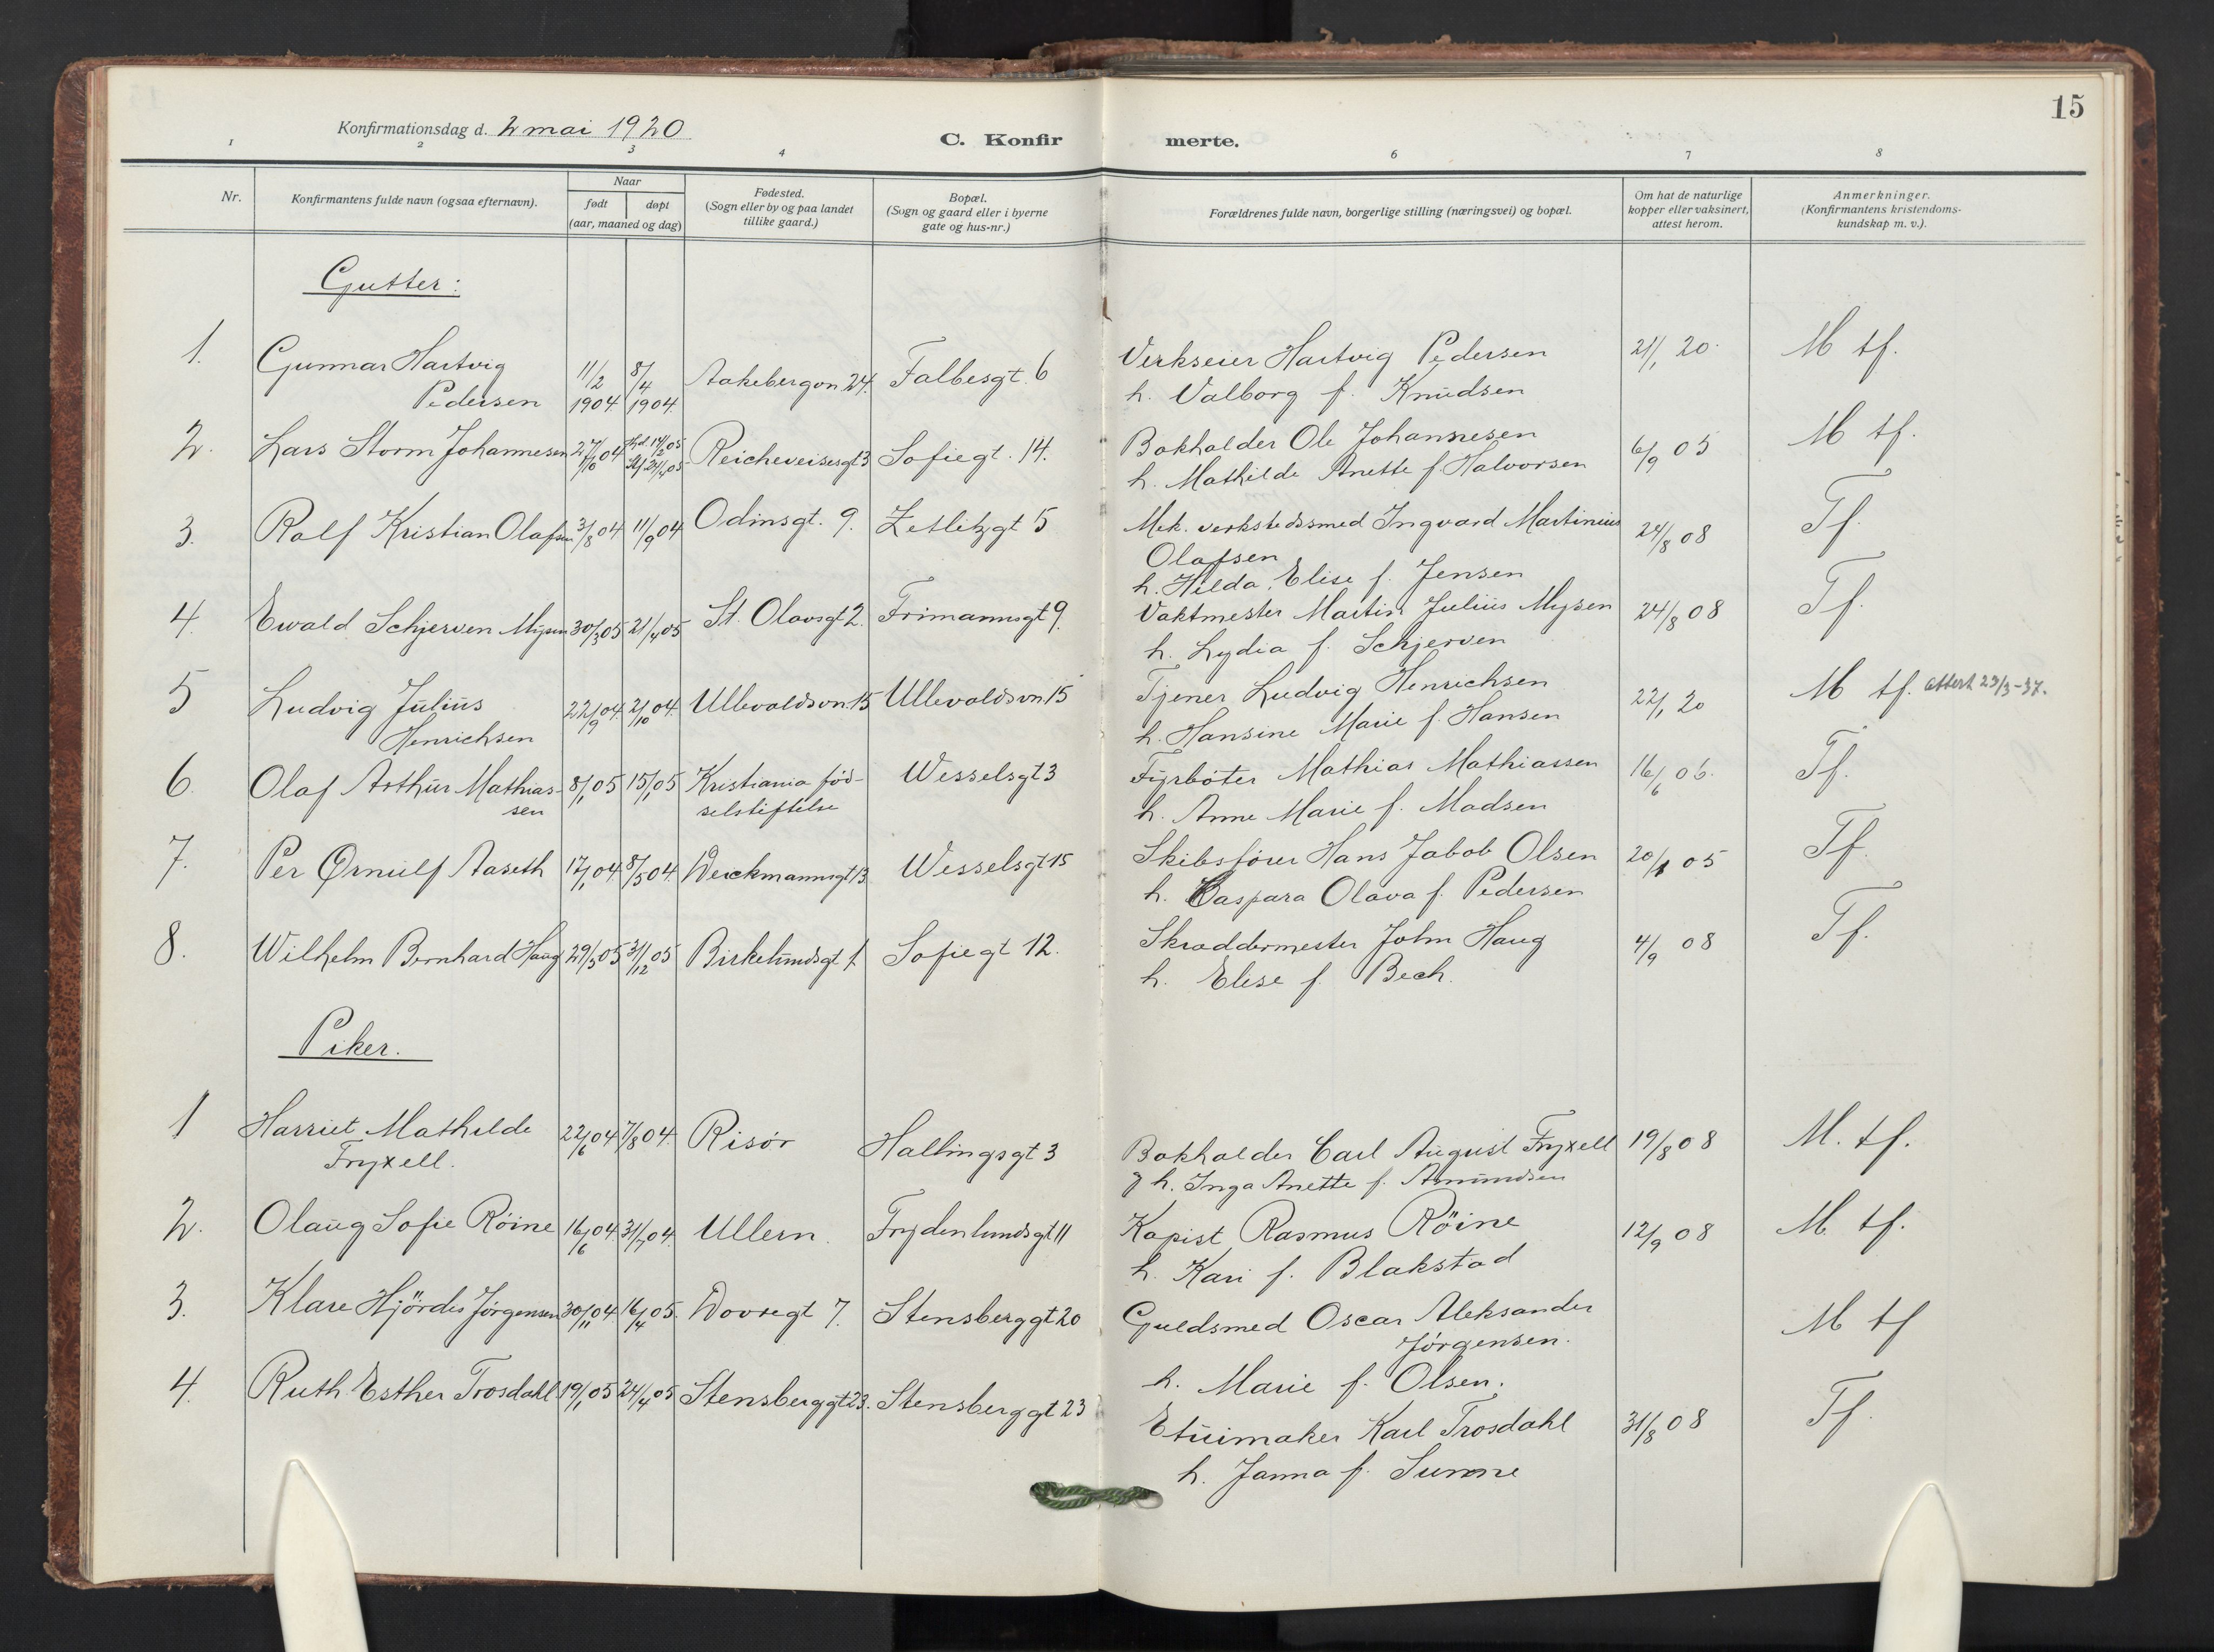 15
Konfirmationsdag d. 2 mai 1920
C. Konfirmerte.
1 2 3 4 6 7 8
Nr.
Konfirmantens fulde navn (ogsaa efternavn).
Naar
født døpt
(aar, maaned og dag)
Fødested.
(Sogn eller by og paa landet
tillike gaard.)
Bopæl.
(Sogn og gaard eller i byerne
gate og hus-nr.)
Forældrenes fulde navn, borgerlige stilling (næringsvei) og bopæl.
Om hat de naturlige
kopper eller vaksinert,
attest herom.
Anmerkninger.
(Konfirmantens kristendoms-
kundskap m. v.).
Gutter:
1. Gunnar Hartvig Pedersen 11/2 1904 8/4 1904. Aakebergvn. 24. Falbesgt. 6
Verkseier Hartvig Pedersen 21/1 20. M tf.
h. Valborg f. Knudsen
2. Lars Storm Johannesen 27/10 04 Hd. 14/2 05 St/ 24/4 05 Reicheveisesgt 3 Sofiegt. 14.
Bokholder Ole Johannesen 6/9 05 M tf.
h. Mathilde Anette f. Halvorsen
3. Ralf Kristian Olafsen 3/8 04 11/9 04 Odinsgt. 9. Zetlitzgt 5
Mek. verkstedssmed Ingvard Martinius 24/8 08 Tf.
Olafsen
h. Hilda Elise f. Jensen
4. Ewald Schjerven Mysen 30/3 05 21/4 05 St. Olavsgt 2. Frimannsgt 9.
Vaktmester Martin Julius Mysen 24/8 08 Tf.
h. Lydia f. Schjerven
5 Ludvig Julius Henrichsen 22/9 04. 2/10 04. Ullevoldsvn. 15 Ullevoldsvn. 15
Tjener Ludvig Henrichsen 22/1 20 M tf. attest 23/3-37.
h. Hansine Marie f. Hansen
6. Olaf Arthur Mathiassen 8/1 05 15/1 05 Kristiania fødselstiftelse Wesselsgt 3
Fyrbøter Mathias Mathiassen 16/6 06. Tf.
h. Anne Marie f. Madsen
7. Per Ørnulf Aaseth 17/1 04. 8/5 04. Weickmannsgt 13 Wesselsgt 15
Skibsfører Hans Jabob Olsen 20/1 05 Tf.
h. Caspara Olava f. Pedersen
8. Wilhelm Bernhard Haug 29/3 05 31/12 05 Birkelundsgt 1. Sofiegt 12.
Skræddermester John Haug 4/9 08 Tf.
h. Elise f. Bech.
Piker.
1 Harriet Mathilde Fryxell. 22/6 04 7/8 04. Risør Hallingsgt 3
Bokholder Carl August Fryxell 19/8 08 M. tf.
& h. Inga Anette f. Amundsen
2. Olaug Sofie Röine 16/6 04. 31/7 04. Ullern. Frydenlundsgt 11
Kopist Rasmus Röine 12/9 08 M. tf.
h. Kari f. Blakstad
3. Klare Hjördis Jørgensen 30/11 04. 16/4 05. Dovregt 7. Stensberggt 20
Guldsmed Oscar Aleksander Jørgensen. M tf
h. Marie f. Olsen.
4. Ruth Esther Trosdahl 19/1 05 24/4 05 Stensberggt 23. Stensberggt 23
Etuimaker Karl Trosdahl 31/8 08 Tf.
h. Janna f. Sunne